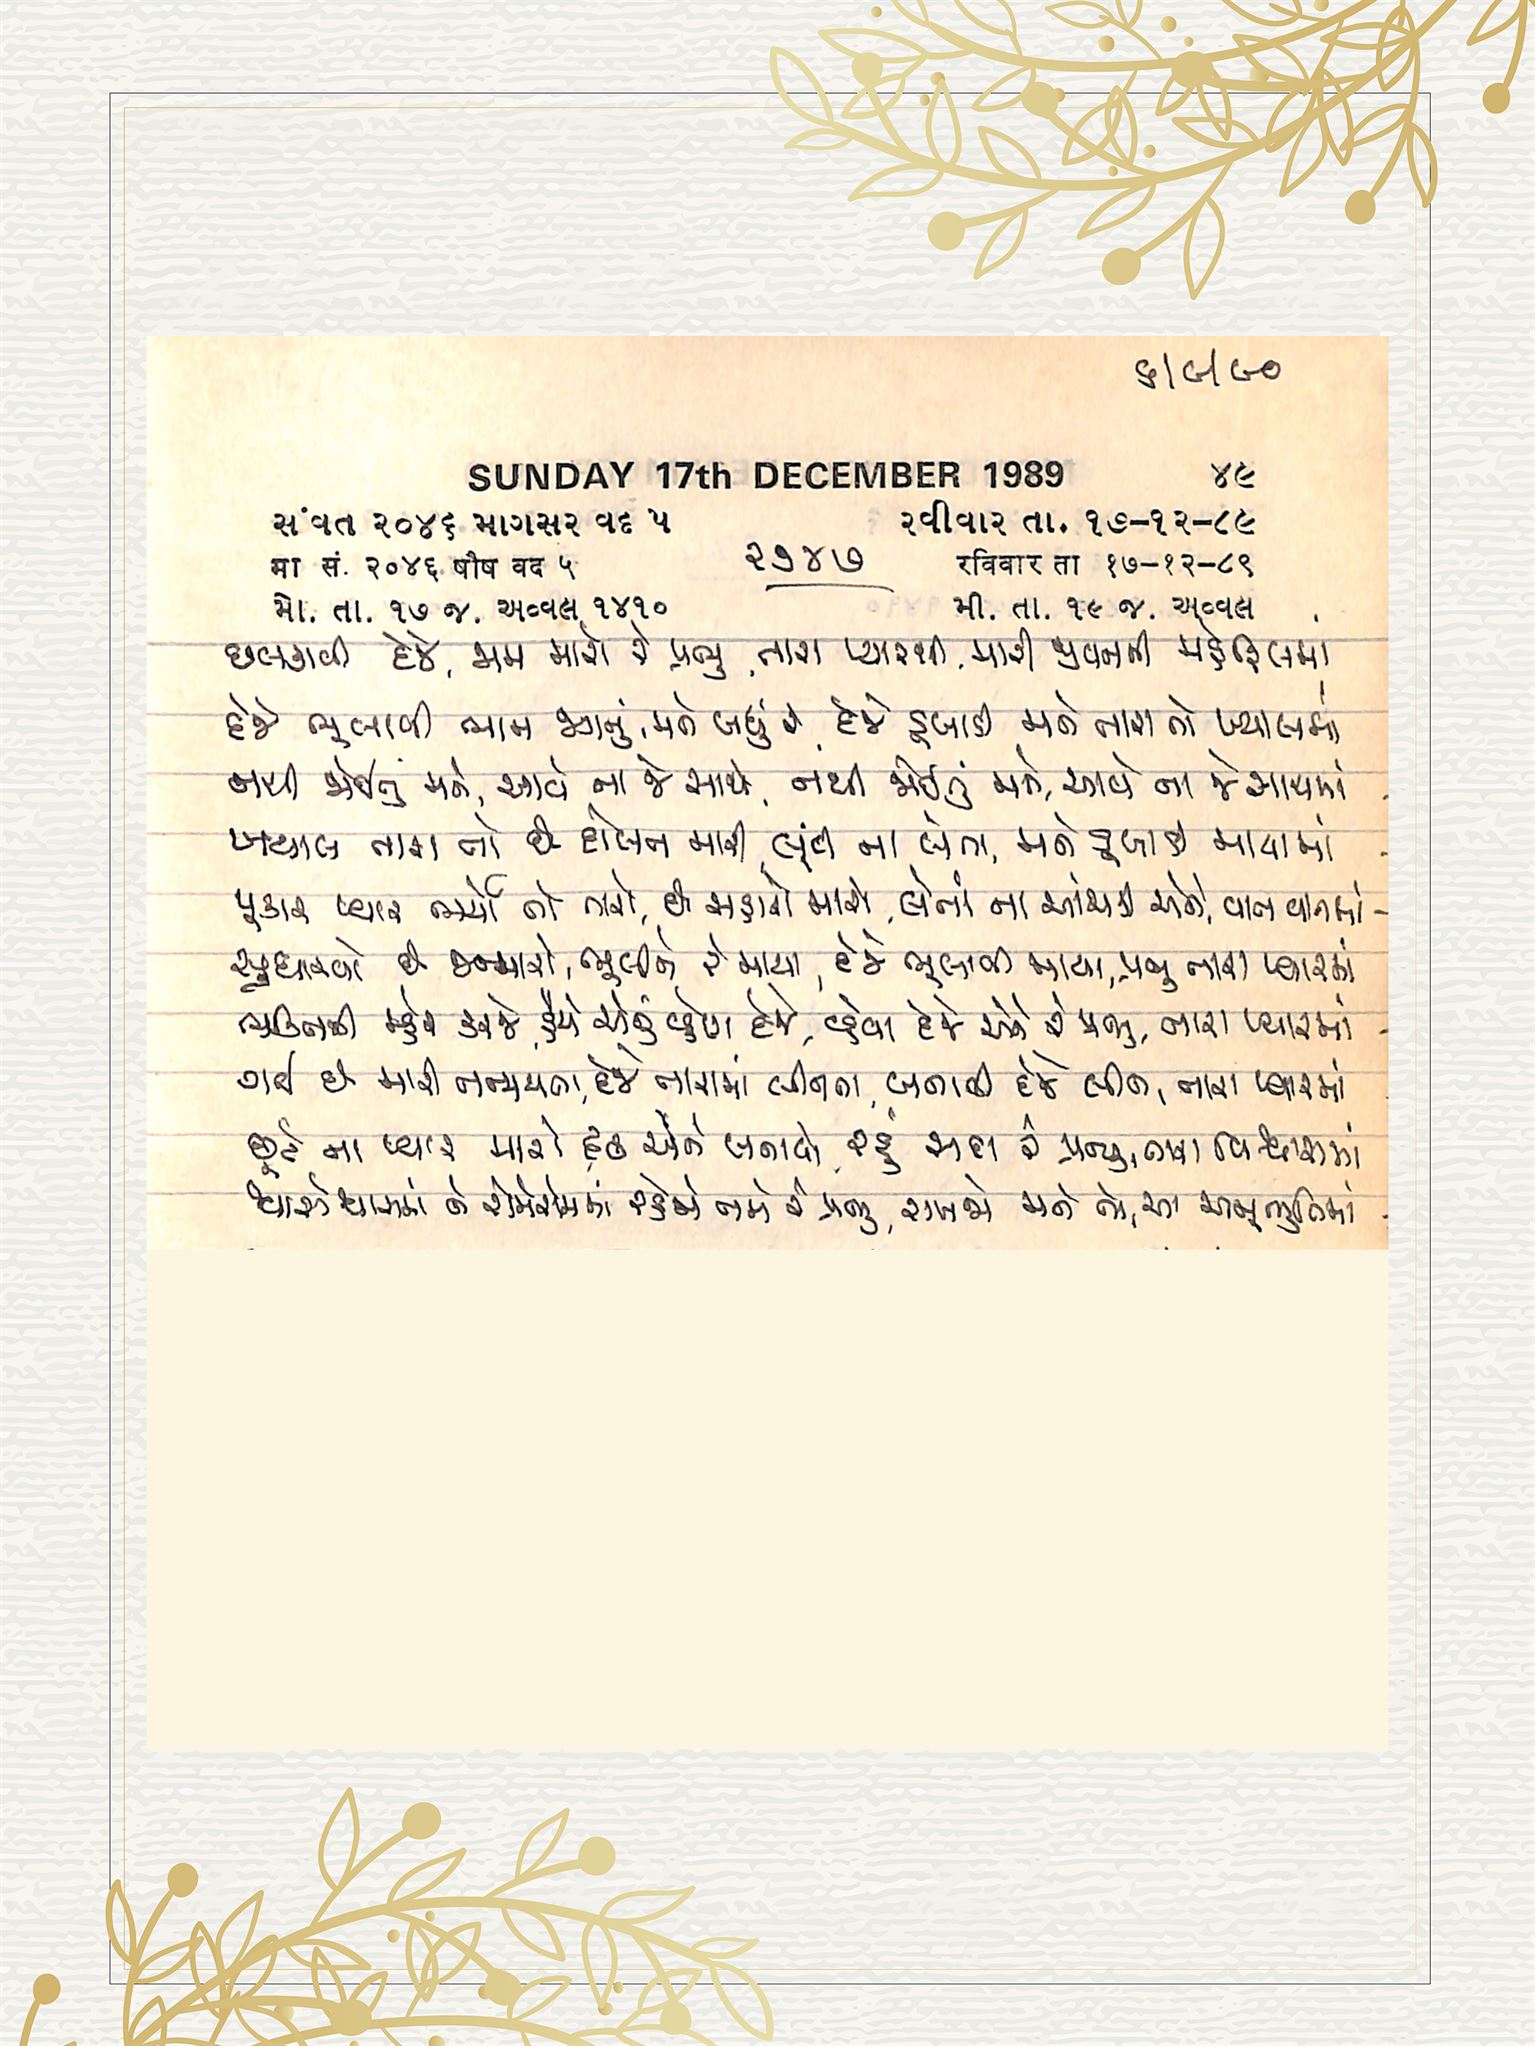 ૬/૯/૯૦
SUNDAY 17th DECEMBER 1989 ૪૯
સંવત ૨૦૪૬ માગસર વદ ૫ રવીવાર તા. ૧૭–૧૨–૮૯
मा सं. २०४६ पौष वद ५ ૨૭૪૭ रविवार ता १७–१२–८९
મો. તા. ૧૭ જ. અવ્વલ ૧૪૧૦ મી. તા. ૧૯ જ. અવ્વલ
છલકાવી દેજે, જામ મારો રે પ્રભુ, તારા પ્યારથી, મારી જીવનની મહેફિલમાં
દેજે ભૂલાવી ભાન જગનું, મને બધું રે, દેજે ડૂબાડી મને તારા તો ખ્યાલમાં
નથી જોઈતું મને, આવે ના જે સાથે, નથી જોઈતું મને, આવે ના જે સાથમાં
ખ્યાલ તારા તો છે દોલત મારી, લૂંટી ના લેતા, મને ડૂબાડી માયામાં
પૂકાર પ્યાર ભર્યો તો તારો, છે સહારો મારો, લેતાં ના આંચકી એને, વાત વાતમાં –
સુધારવો છે જન્મારો, ભૂલીને રે માયા, દેજે ભૂલાવી માયા, પ્રભુ તારા પ્યારમાં
ભક્તિની મ્હેર કરજે, હૈયે એનું વ્હેણ દેજે, વ્હેવા દેજે એને રે પ્રભુ, તારા પ્યારમાં
ગર્વ છે મારી તન્મયતા, દેજે તારામાં લીનતા, બનાવી દેજે લીન, તારા પ્યારમાં
છૂટે ના પ્યાર મારો, દૃઢ એને બનાવો, રહું સદા રે પ્રભુ, તારા વિશ્વાસમાં
શ્વાસેશ્વાસમાં ને રોમેરોમમાં રહેજો તમે રે પ્રભુ, રાખજો મને તો, આ અનુભૂતિમાં